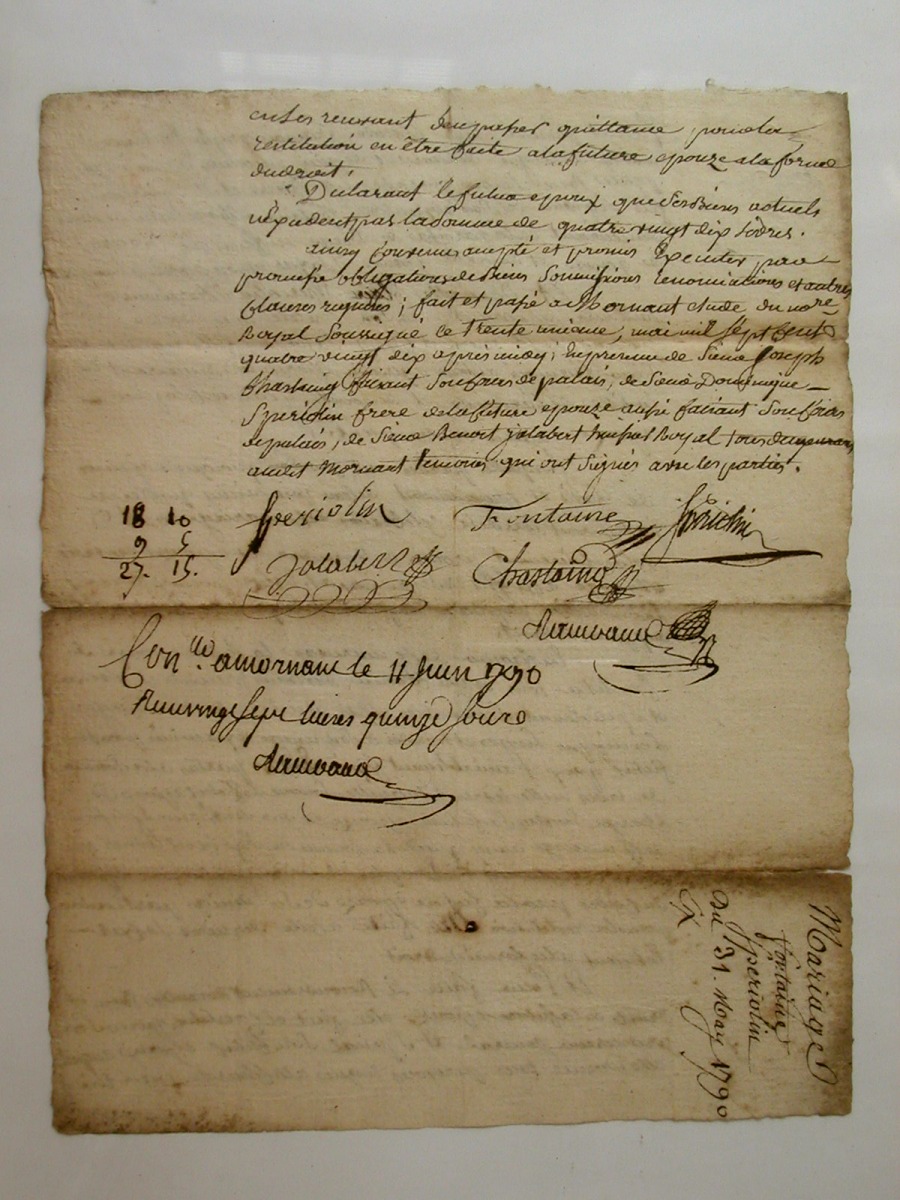 en les recevant d'en passer quittance, pour la
restitution en être faite a la future epouze a la forme
du droit.
Declarant le futur epoux que ses biens actuels
n'excedent pas la somme de quatre vingt dix livres.
ainsy convenu accepté et promis executer par
promesse obligations de biens soumissions renonciations et autres
clauses requises; fait et passé a Mornant etude du no.re
Royal soussigné ce trente uniéme, mai mil sept cent
quatre vingt dix après midy; en presence de Sieur Joseph
Chastaing faisant ses affaires de palais, de Sieur Dominique
Speriolin frere de la future epouze aussi faisant ses affaires
de palais, de Sieur Benoit Jalabert huissier Royal tous demeurans
audit Mornant temoins qui ont signés avec les parties.
18 10
9 5
27. 15.
Speriolin Fontaine Speriolin
Jalabert Chastaing
Con.llé a mornant le 11 Juin 1790
Reçu vingt sept livres quinze sous
Mariage
fontaine
Speriolin
Du 31. May 1790